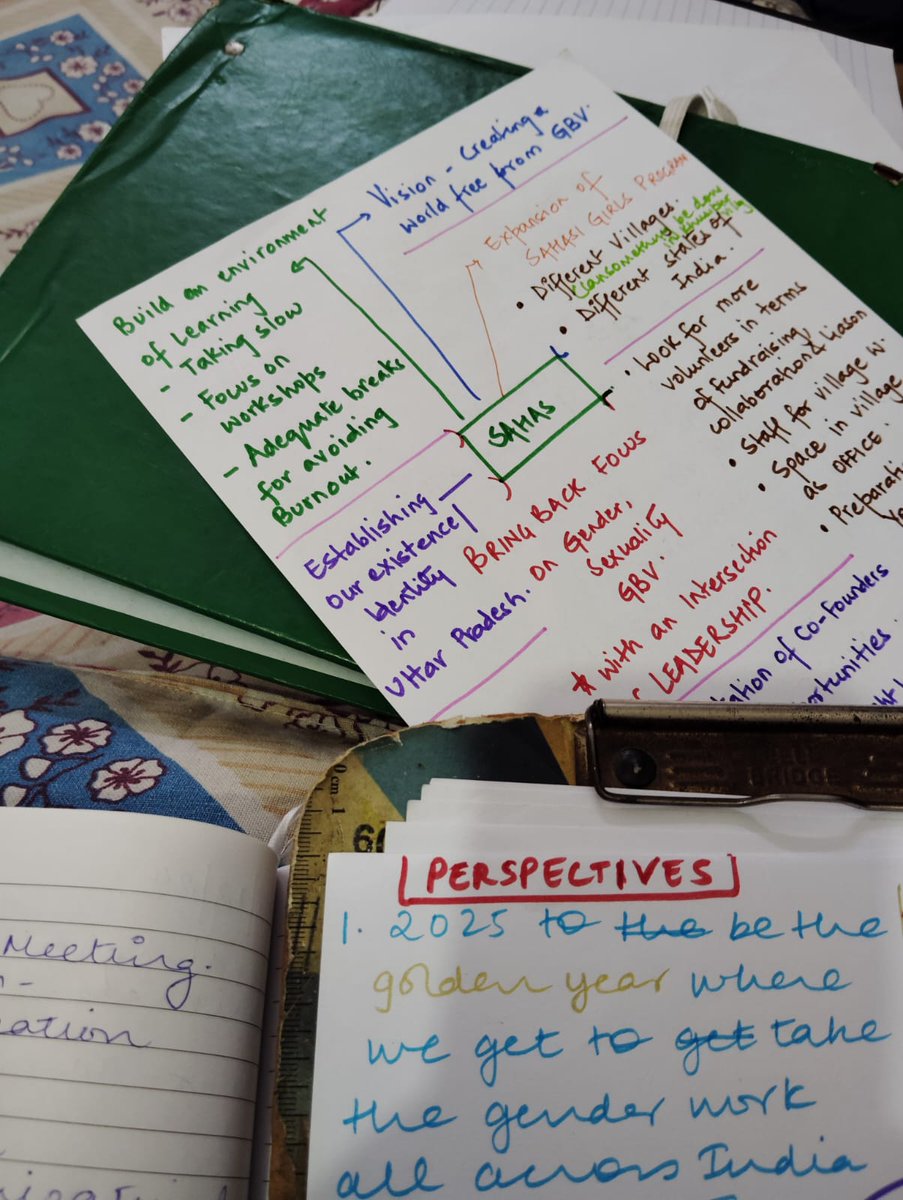 Vision - Creating a
world free from GBV.
Expansion of
SAHASI GIRLS PROGRAM
• Different villages.
• Different states of
India.
Build an environment
of Learning
- Taking slow
- Focus on
workshops
- Adequate breaks
for avoiding
Burnout.
SAHAS
• Look for more
volunteers in terms
of fundraising
collaboration & liason
• Staff for village w.
• Space in village
as OFFICE.
• Preparati
Establishing
our existence/
Identity
in
Uttar Pradesh.
BRING BACK FOCUS
on Gender,
Sexuality
GBV.
* with an Intersection
LEADERSHIP.
ation of Co-founders
ortunities.
PERSPECTIVES
1. 2025 to the be the
golden year where
we get to get take
the gender work
all across India
Meeting.
ation
BRIDGE
0 cm 1